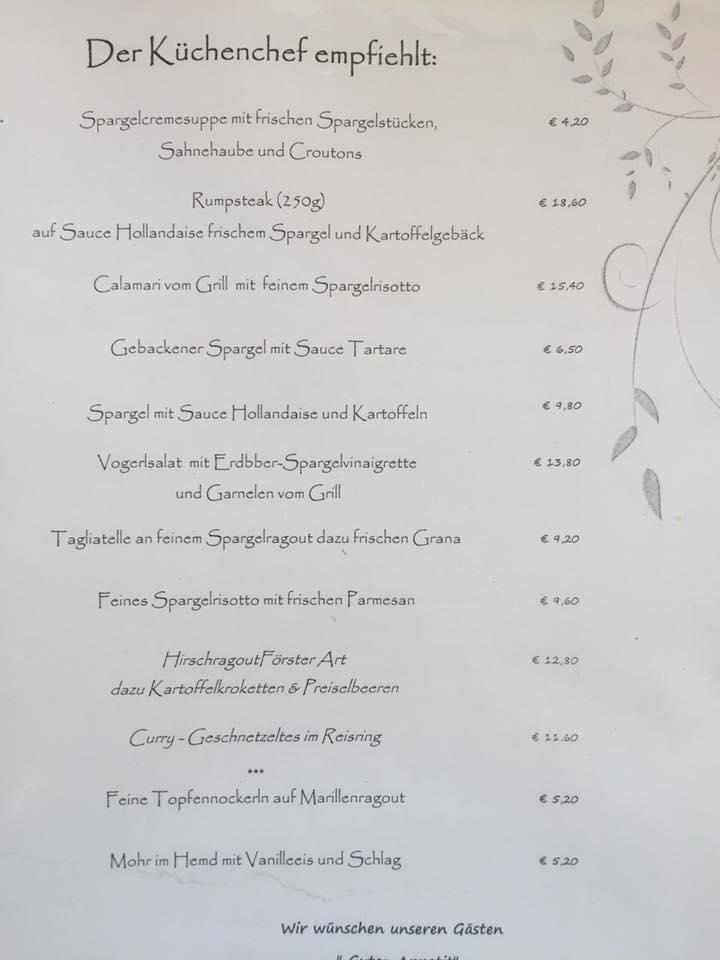 Der Küchenchef empfiehlt:
Spargelcremesuppe mit frischen Spargelstücken, € 4,20
Sahnehaube und Croutons
Rumpsteak (250g) € 18,60
auf Sauce Hollandaise frischem Spargel und Kartoffelgebäck
Calamari vom Grill mit feinem Spargelrisotto € 15,40
Gebackener Spargel mit Sauce Tartare € 6,50
Spargel mit Sauce Hollandaise und Kartoffeln € 9,80
Vogerlsalat mit Erdbber-Spargelvinaigrette € 13,80
und Garnelen vom Grill
Tagliatelle an feinem Spargelragout dazu frischen Grana € 9,20
Feines Spargelrisotto mit frischen Parmesan € 9,60
HirschragoutFörster Art € 12,80
dazu Kartoffelkroketten & Preiselbeeren
Curry - Geschnetzeltes im Reisring € 11.60
***
Feine Topfennockerln auf Marillenragout € 5,20
Mohr im Hemd mit Vanilleeis und Schlag € 5,20
Wir wünschen unseren Gästen
" Guten Appetit"